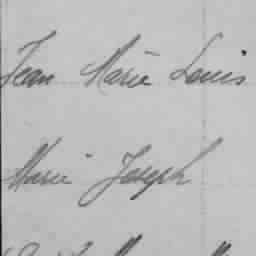 Jean Marie Louis
Marie Joseph